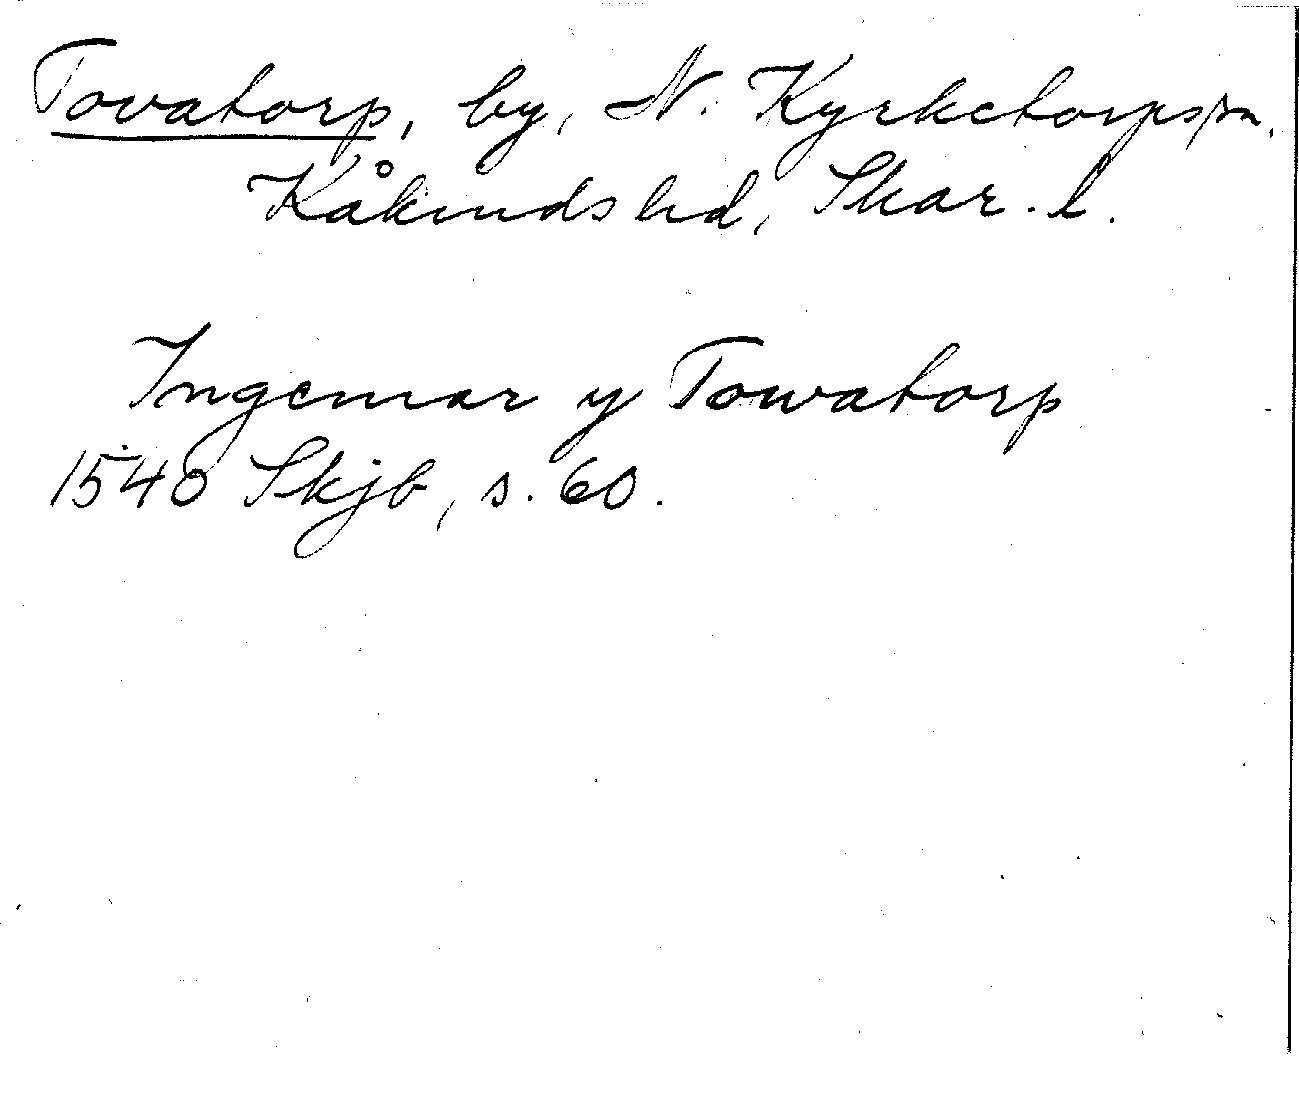 Tovatorp, by, N. Kyrketorps sn,
Kåkinds hd, Skar. l.
Ingemar y Towatorp
1540 Skjb, s. 60.